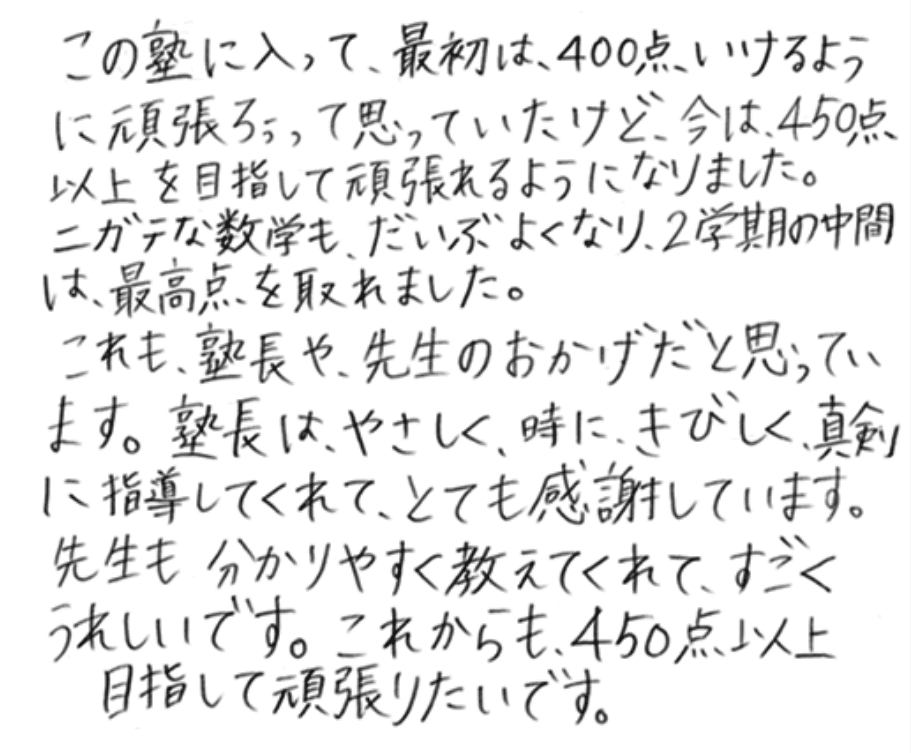 この塾に入って、最初は、400点、いけるよう
に頑張ろうって思っていたけど、今は、450点
以上を目指して頑張れるようになりました。
ニガテな数学も、だいぶよくなり、2学期の中間
は、最高点を取れました。
これも、塾長や、先生のおかげだと思ってい
ます。塾長は、やさしく、時に、きびしく、真剣
に指導してくれて、とても感謝しています。
先生も分かりやすく教えてくれて、すごく
うれしいです。これからも、450点以上
目指して頑張りたいです。